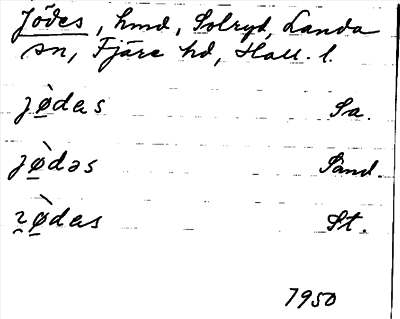 Jödes, hmd, Solryd, Landa
sn, Fjäre hd, Hall. l.
jø̀des Sa.
jø̀dəs Sand.
ɿø̀des St.
1950